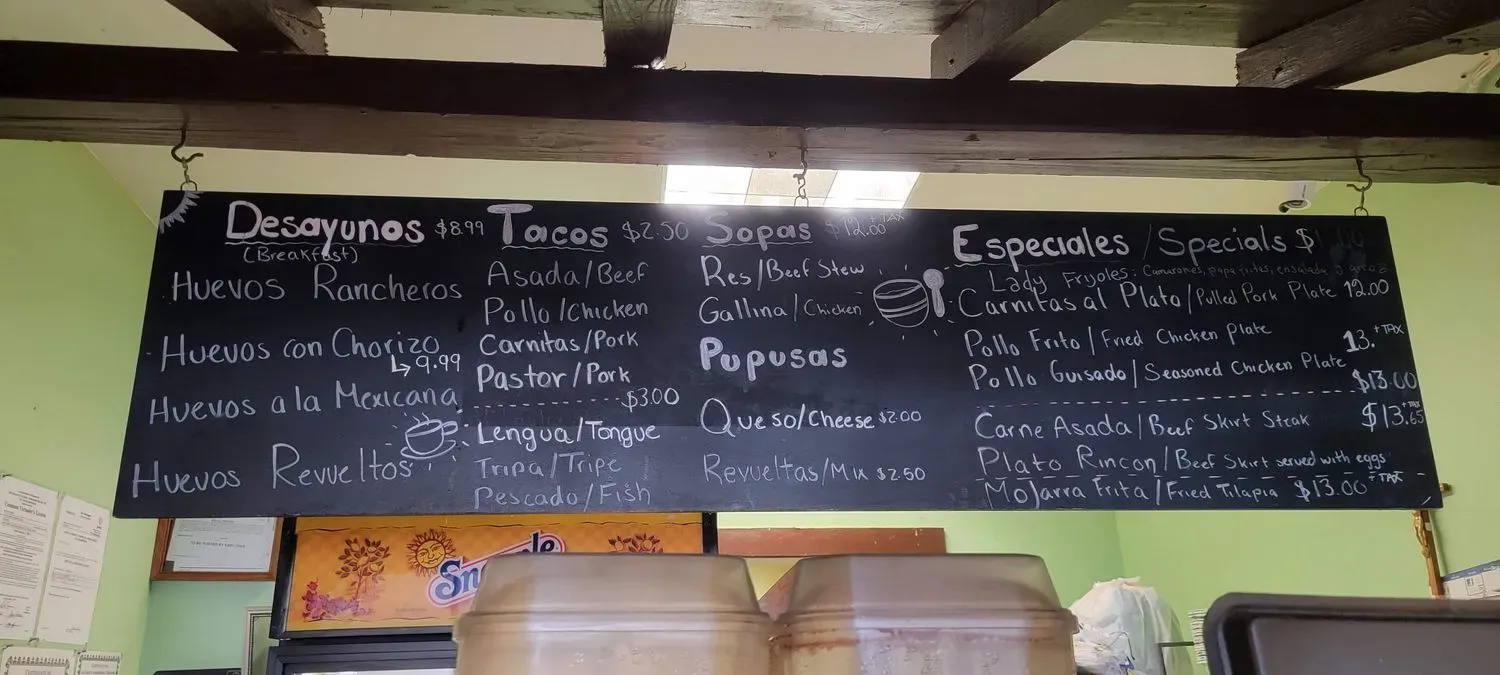 Desayunos $8.99
(Breakfast)
Huevos Rancheros
Huevos con Chorizo
↳ 9.99
Huevos a la Mexicana
Huevos Revueltos
Tacos $2.50
Asada/Beef
Pollo/Chicken
Carnitas/Pork
Pastor/Pork
$3.00
Lengua/Tongue
Tripa/Tripe
Pescado/Fish
Sopas $12.00 +TAX
Res/Beef Stew
Gallina/Chicken
Pupusas
Queso/Cheese $2.00
Revueltas/Mix $2.50
Especiales/Specials $
Lady Fryoles: Camarones, papa fritas, ensalada
Carnitas al Plato/Pulled Pork Plate 12.00
Pollo Frito/Fried Chicken Plate 13. +TAX
Pollo Guisado/Seasoned Chicken Plate $13.00
Carne Asada/Beef Skirt Steak $13.65 +TAX
Plato Rincon/Beef Skirt served with eggs
Mojarra Frita/Fried Tilapia $13.00 +TAX